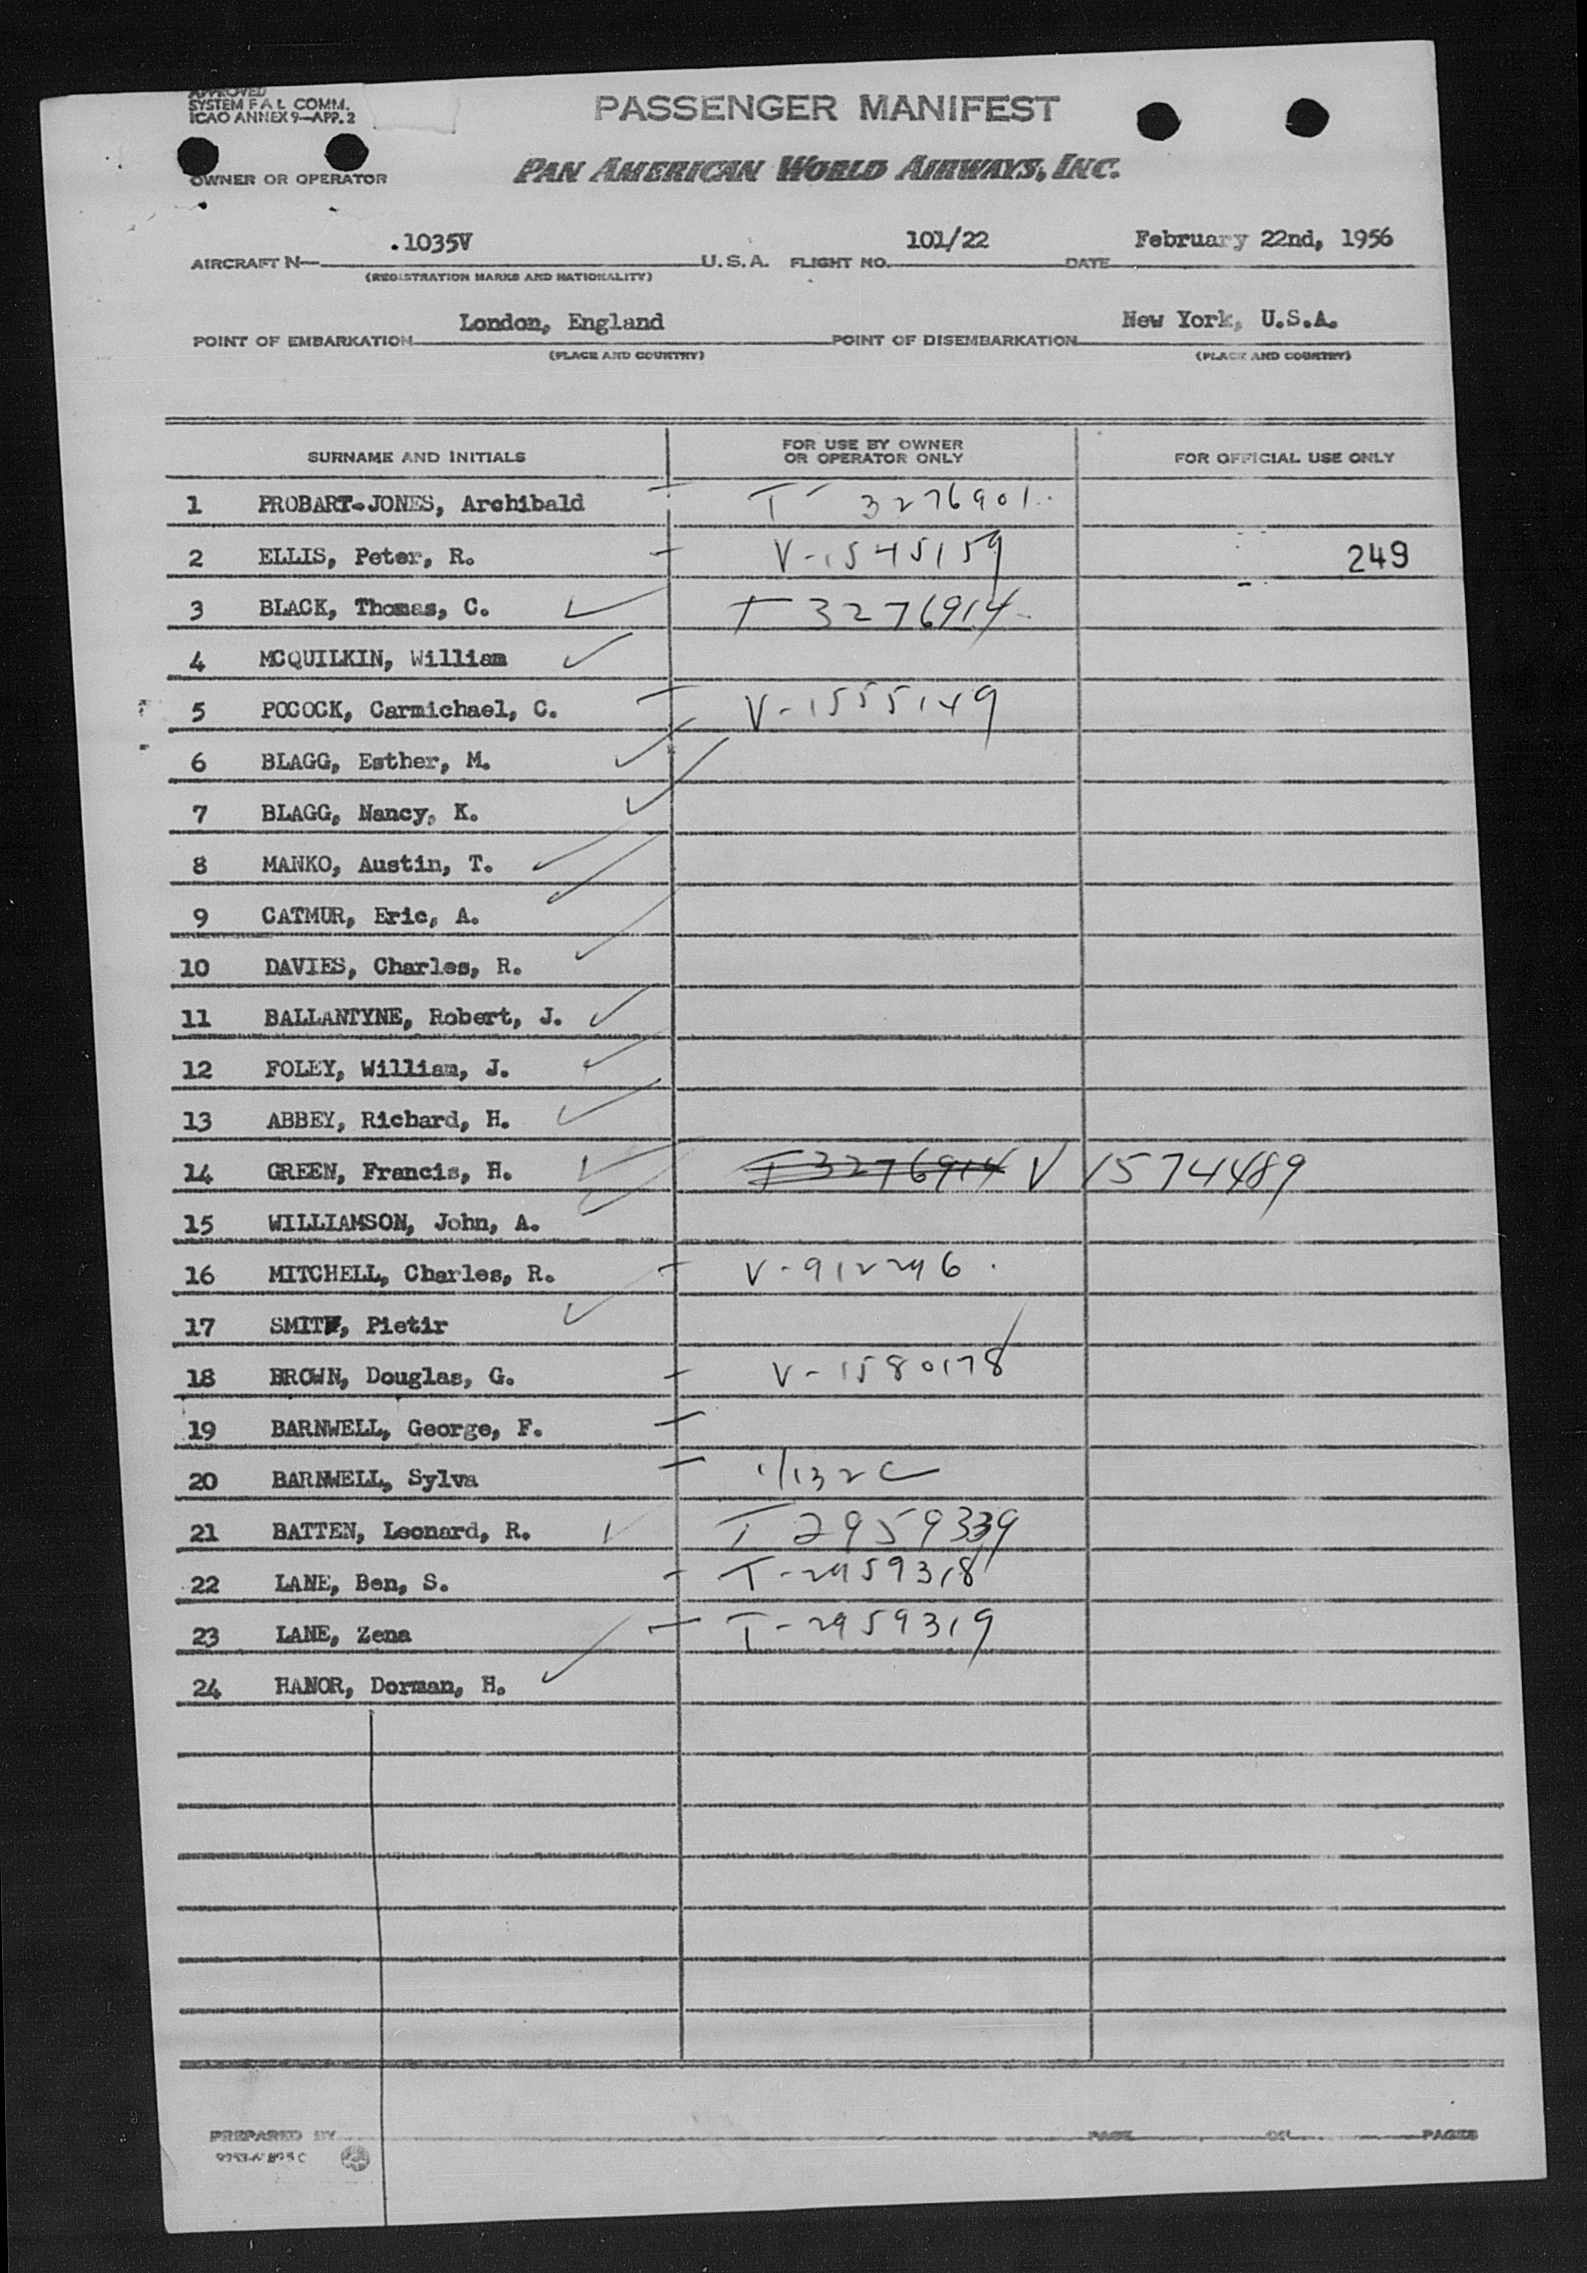 APPROVED
SYSTEM F A L COMM.
ICAO ANNEX 9—APP. 2
PASSENGER MANIFEST
OWNER OR OPERATOR
PAN AMERICAN WORLD AIRWAYS, INC.
AIRCRAFT N— .1035V U.S.A. FLIGHT NO. 101/22 DATE February 22nd, 1956
(REGISTRATION MARKS AND NATIONALITY)
POINT OF EMBARKATION London, England POINT OF DISEMBARKATION New York, U.S.A.
(PLACE AND COUNTRY) (PLACE AND COUNTRY)
SURNAME AND INITIALS FOR USE BY OWNER OR OPERATOR ONLY FOR OFFICIAL USE ONLY
1 PROBART-JONES, Archibald T 3276901
2 ELLIS, Peter, R. V-1545159 249
3 BLACK, Thomas, C. T 3276914
4 MCQUILKIN, William
5 POCOCK, Carmichael, C. V-1555149
6 BLAGG, Esther, M.
7 BLAGG, Nancy, K.
8 MANKO, Austin, T.
9 CATMUR, Eric, A.
10 DAVIES, Charles, R.
11 BALLANTYNE, Robert, J.
12 FOLEY, William, J.
13 ABBEY, Richard, H.
14 GREEN, Francis, H. T 3276914 V 1574489
15 WILLIAMSON, John, A.
16 MITCHELL, Charles, R. V-912296
17 SMITH, Pietir
18 BROWN, Douglas, G. V-1580178
19 BARNWELL, George, F.
20 BARNWELL, Sylva
21 BATTEN, Leonard, R. T 2959339
22 LANE, Ben, S. T-2959318
23 LANE, Zena T-2959319
24 HANOR, Dorman, H.
PREPARED BY PAGE OF PAGES